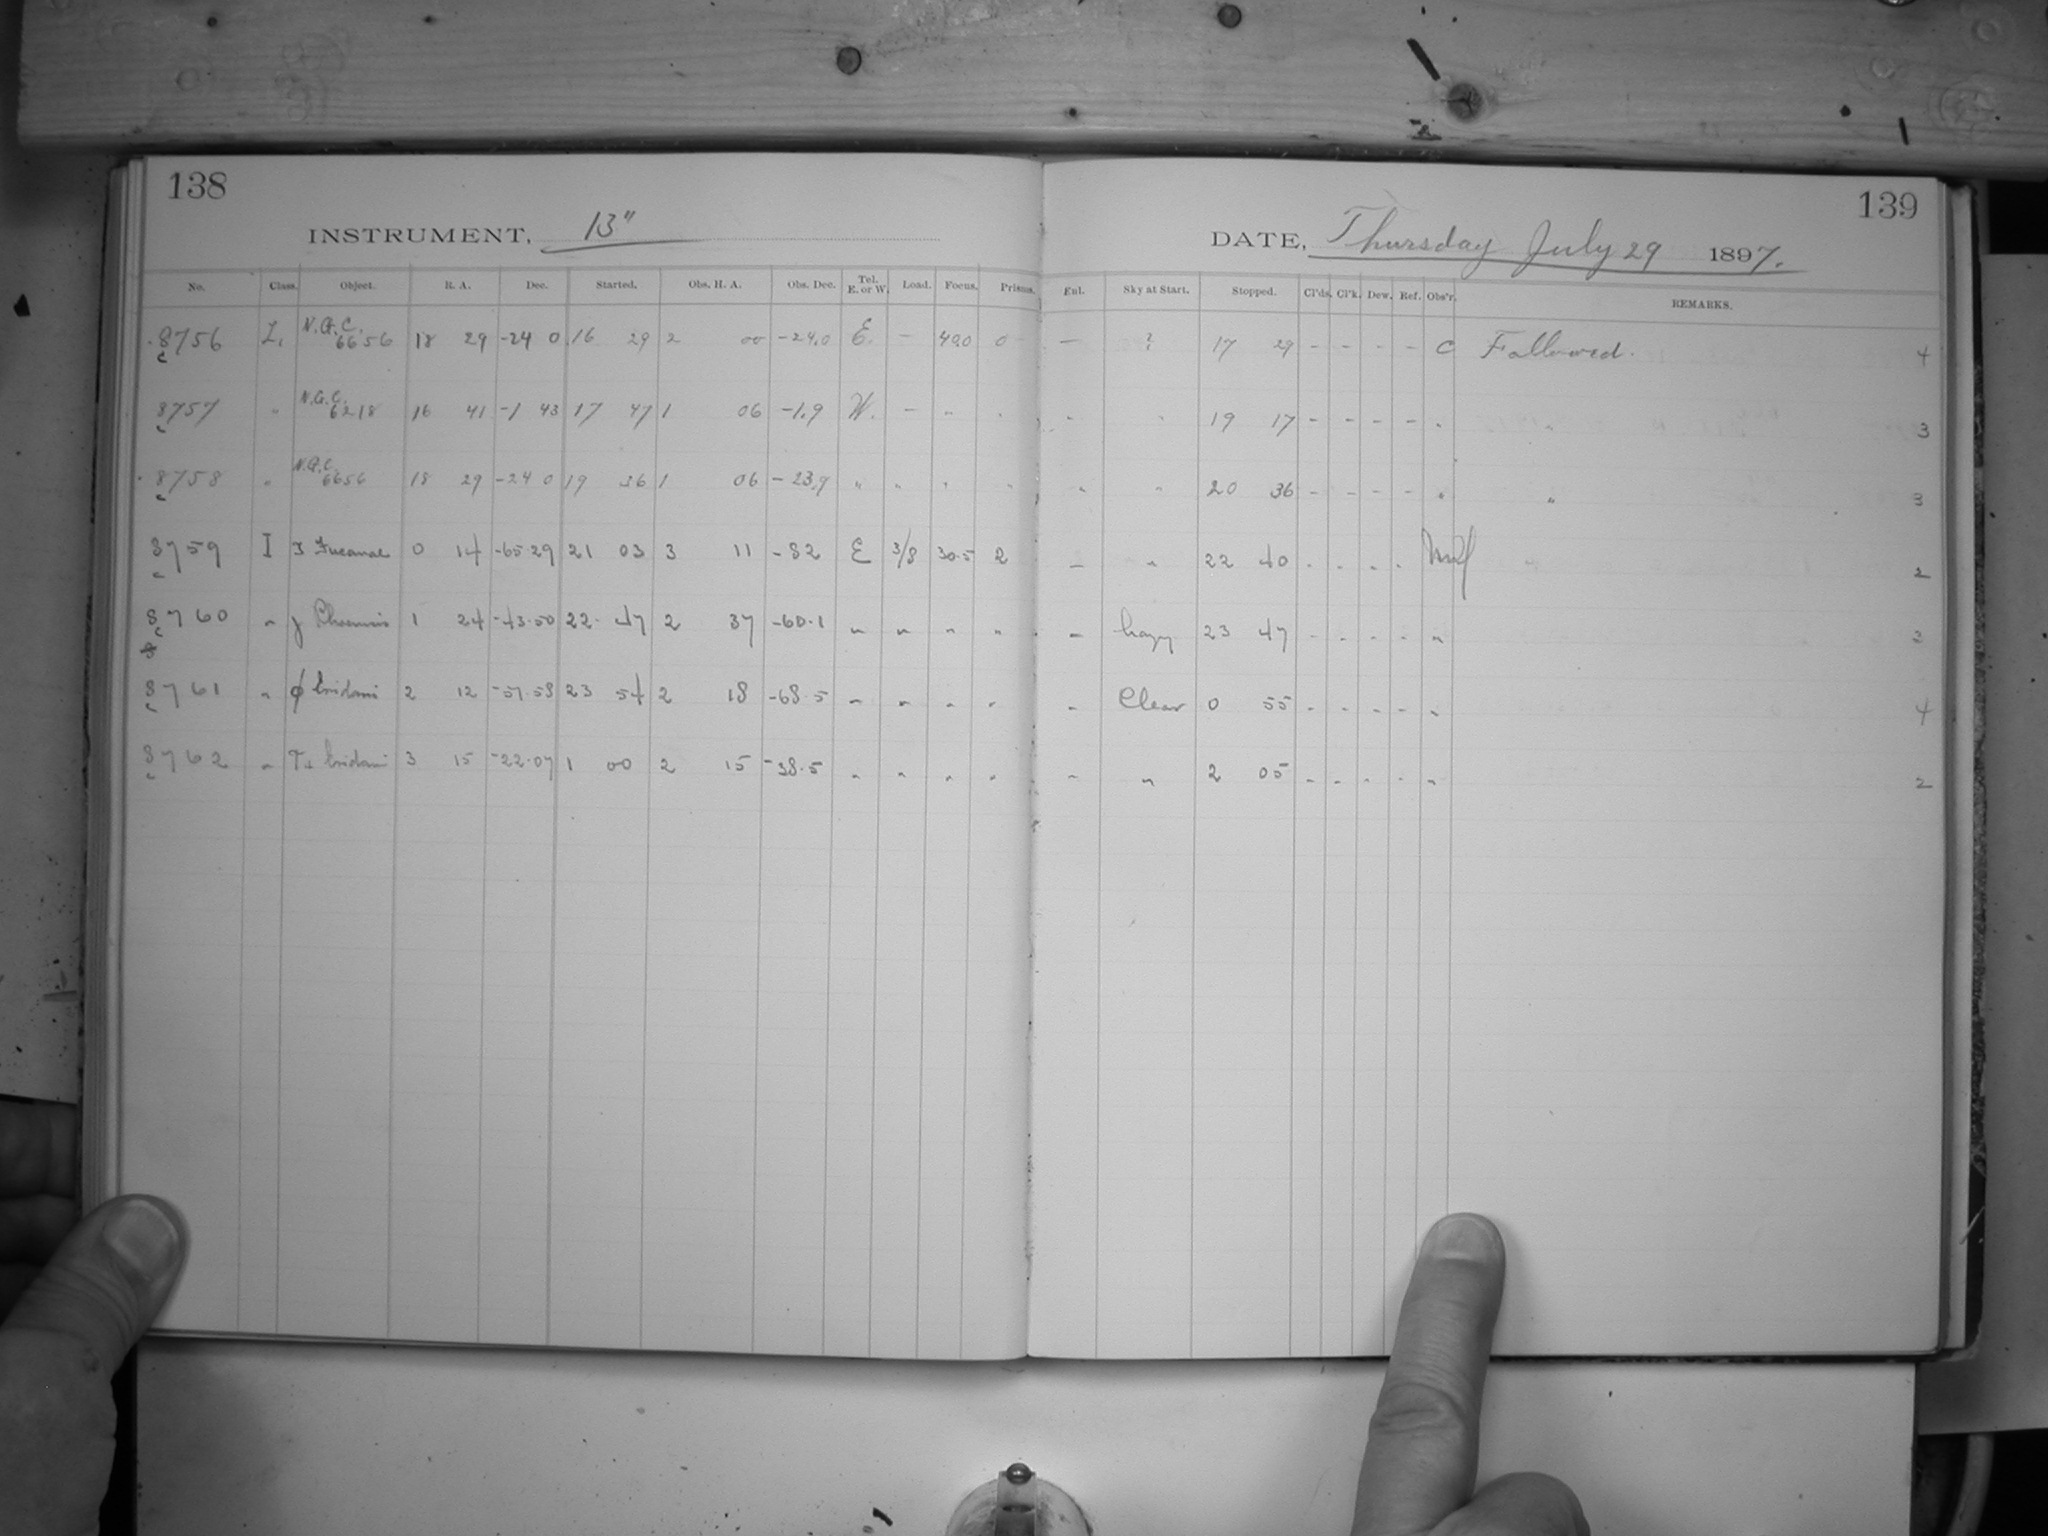 138
139
INSTRUMENT, 13"
DATE, Thursday July 29 1897.
No. Class. Object. R. A. Dec. Started. Obs. H. A. Obs. Dec. Tel. E. or W. Load. Focus. Prisms. Enl. Sky at Start. Stopped. Cl'ds. Cl'k. Dew. Ref. Obs'r. REMARKS.
8756 L, N.G.C. 6656 18 29 -24 0 16 29 2 00 -24.0 E. - 40.0 0 - ? 17 29 - - - - C Followed. 4
8757 " N.G.C. 6218 16 41 -1 43 17 47 1 06 -1.9 W. - " " " " 19 17 - - - - " 3
8758 " N.G.C. 6656 18 29 -24 0 19 36 1 06 -23.9 " " " " " " 20 36 - - - - " " 3
8759 I 0 14 -65.29 21 03 3 11 -82 E 3/8 30.5 2 - " 22 40 - - - - 2
8760 " Phoenicis 1 24 -43.50 22 47 2 37 -60.1 " " " " - hazy 23 47 - - - - " 3
8761 " φ Eridani 2 12 -51.58 23 54 2 18 -68.5 " " " " " Clear 0 55 - - - - " 4
8762 " Eridani 3 15 -22.07 1 00 2 15 -38.5 " " " " " " 2 05 - - - - " 2